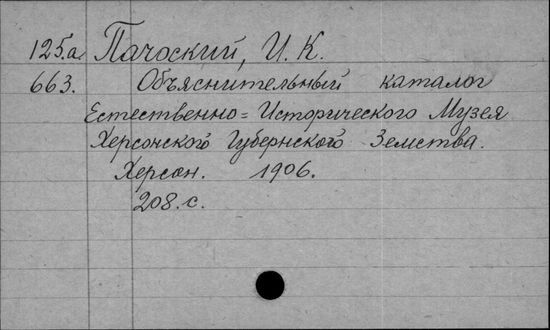 125.a. Пачоский, И. К.
663. Объяснительный каталог
Естественно=Исторического Музея
Херсонского Губернского Земства.
Херсон. 1906.
208.с.